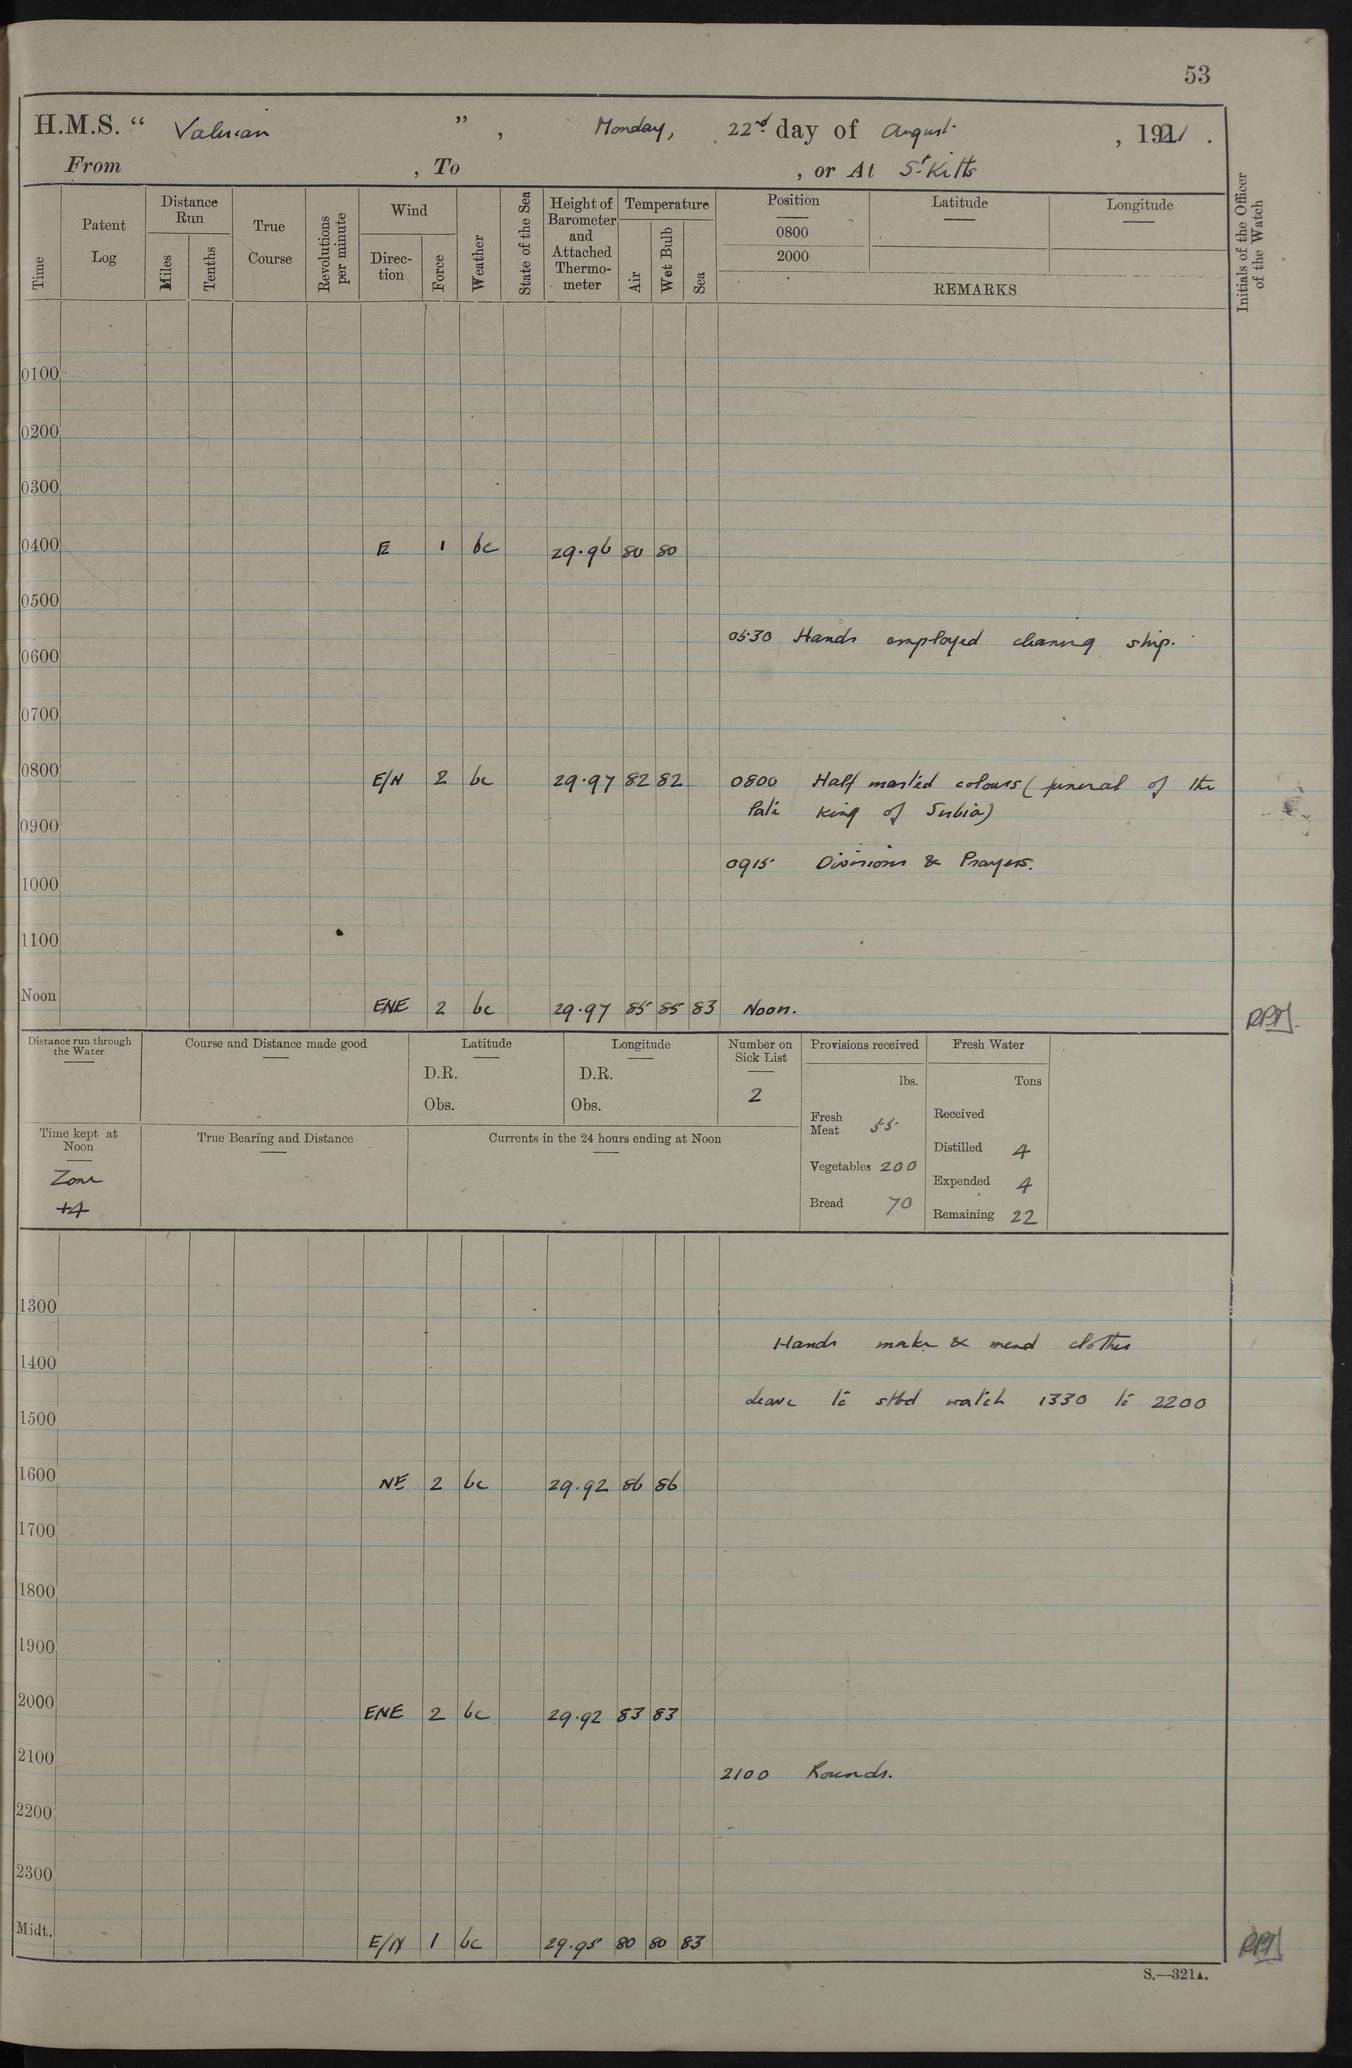 53
H.M.S. “ Valerian ” , Monday, 22nd day of August , 1921 .
From , To , or At St Kitts
Time
Patent Log
Distance Run
Miles
Tenths
True Course
Revolutions per minute
Wind
Direc-tion
Force
Weather
State of the Sea
Height of Barometer and Attached Thermo-meter
Temperature
Air
Wet Bulb
Sea
Position
0800
2000
Latitude
Longitude
REMARKS
Initials of the Officer of the Watch
0100
0200
0300
0400 E 1 bc 29.96 80 80
0500
0530 Hands employed cleaning ship.
0600
0700
0800 E/N 2 bc 29.97 82 82 0800 Half masted colours ( funeral of the
late King of Serbia)
0900
0915 Divisions & Prayers.
1000
1100
Noon ENE 2 bc 29.97 85 85 83 Noon.
Distance run through the Water
Course and Distance made good
Latitude
D.R.
Obs.
Longitude
D.R.
Obs.
Number on Sick List
2
Provisions received
lbs.
Fresh Meat 55
Vegetables 200
Bread 70
Fresh Water
Tons
Received
Distilled 4
Expended 4
Remaining 22
Time kept at Noon
Zone
+4
True Bearing and Distance
Currents in the 24 hours ending at Noon
1300
Hands make & mend clothes
1400
Leave to stbd watch 1330 to 2200
1500
1600 NE 2 bc 29.92 86 86
1700
1800
1900
2000 ENE 2 bc 29.92 83 83
2100
2100 Rounds.
2200
2300
Midt. E/N 1 bc 29.95 80 80 83
S.—321A.